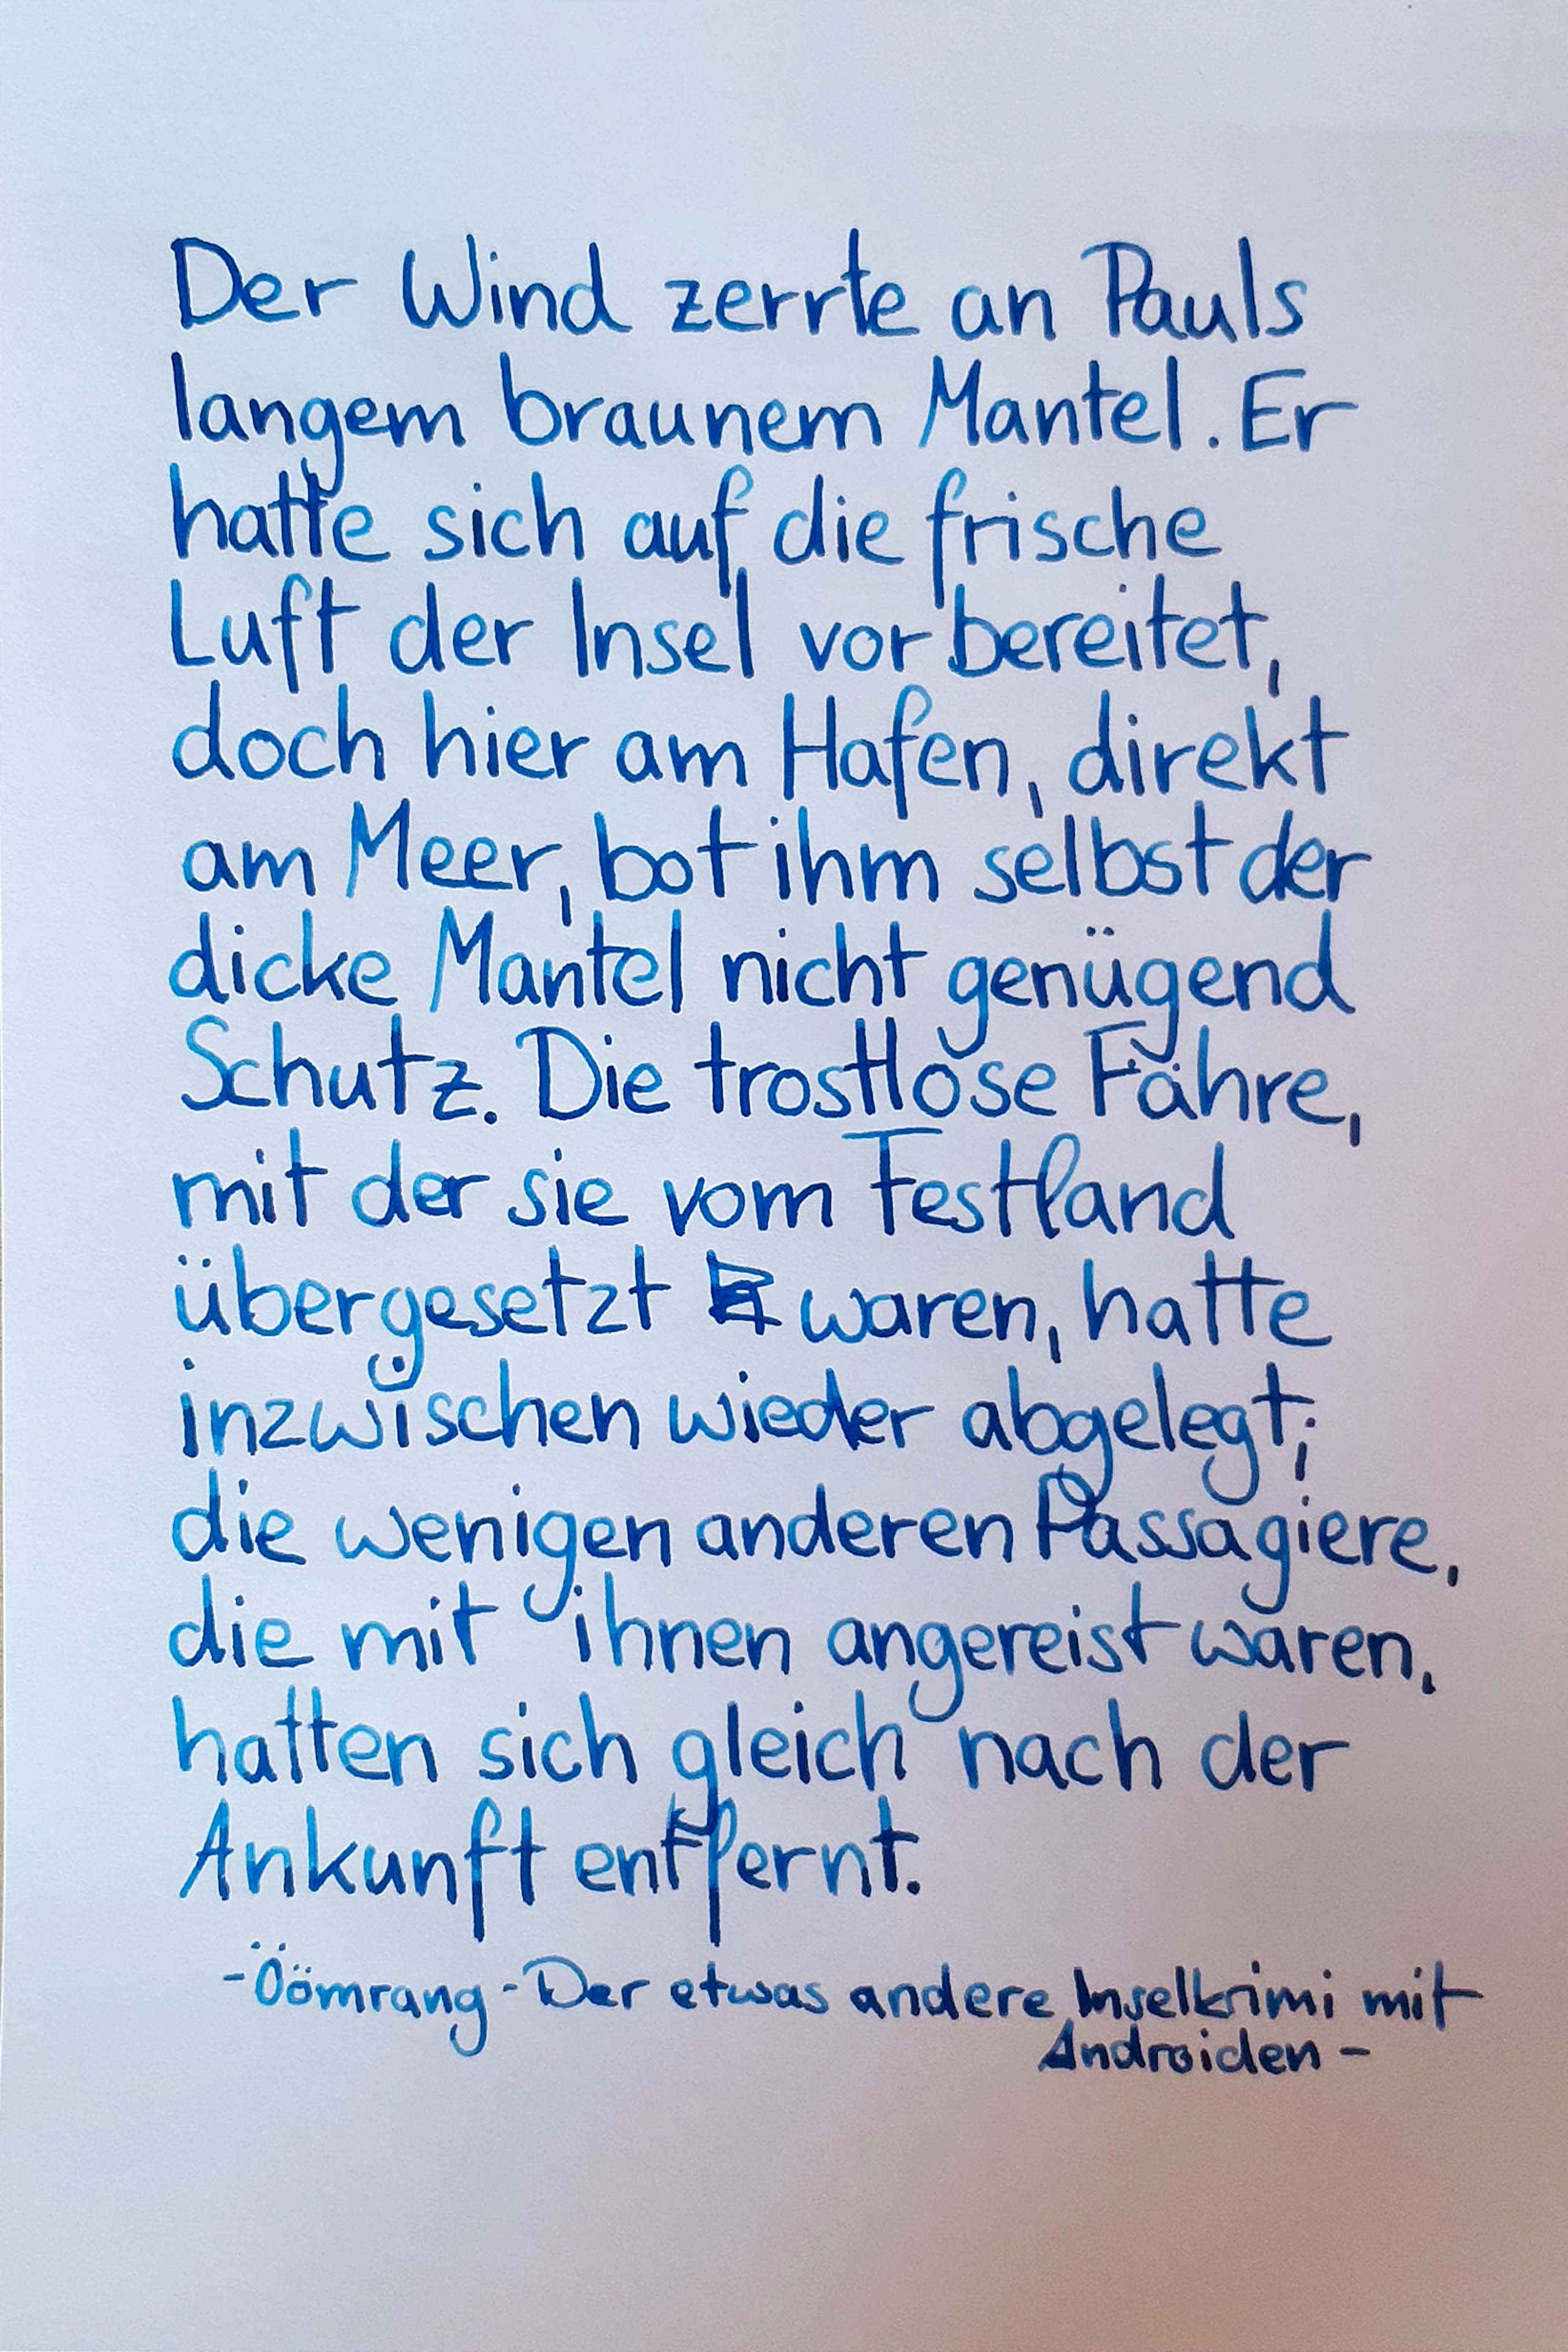 Der Wind zerrte an Pauls
langem braunem Mantel. Er
hatte sich auf die frische
Luft der Insel vorbereitet,
doch hier am Hafen, direkt
am Meer, bot ihm selbst der
dicke Mantel nicht genügend
Schutz. Die trostlose Fähre,
mit der sie vom Festland
übergesetzt waren, hatte
inzwischen wieder abgelegt;
die wenigen anderen Passagiere,
die mit ihnen angereist waren,
hatten sich gleich nach der
Ankunft entfernt.
-Öömrang - Der etwas andere Inselkrimi mit
Androiden -